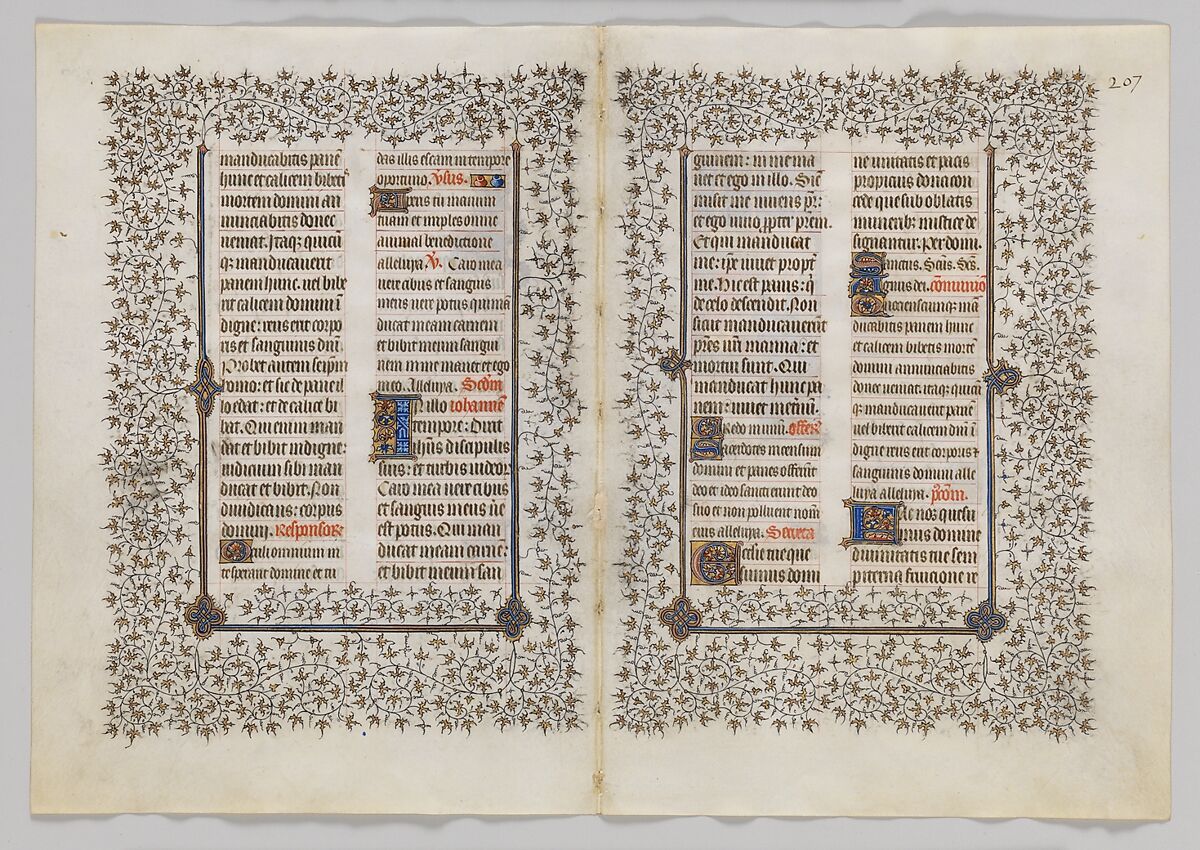 manducabitis pane
hunc et calicem bibetis
mortem domini an
nunciabitis donec
ueniat. Itaq; quicū
q; manducauerit
panem hunc. uel bibe
rit calicem domini ī
digne: reus erit corpo
ris et sanguinis dnī.
Probet autem seipm̄
homo: et sic de pane il
lo edat: et de calice bi
bat. Qui enim man
ducat et bibit indigne:
iudicium sibi man
ducat et bibit. Non
diiudicans: corpus
domini. Responsor
Oculi omnium in
te sperant domine et tu
das illis escam in tempore
oportuno. Vsus.
Aperis tu manum
tuam et imples omne
animal benedictione
alleluya. V. Caro mea
uere cibus et sanguis
meus uere potus qui mā
ducat meam carnem
et bibit meum sangui
nem in me manet et ego
in eo. Alleluya. Scdm
In illo iohannē
tempore: Dixit
ihūs discipulis
suis: et turbis iudeorꝝ
Caro mea uere cibus
et sanguis meus ue
est potus. Qui man
ducat meam carnē:
et bibit meum san
207
guinem: in me ma
net et ego in illo. Sic
misit me uiuens pr̄:
et ego uiuo ꝓpter prēm.
Et qui manducat
me: ipe uiuet propt̄
me. Hic est panis: q̄
de celo descendit. Non
sicut manducauerūt
pres urī manna: et
mortui sunt. Qui
manducat hunc pa
nem: uiuet in eternū.
Credo in unū. offer
Sacerdotes incensum
domini et panes offerūt
deo et ideo sancti erunt deo
suo et non polluent nomē
eius alleluya. Secreta
Ecclesie tue que
sumus domi
ne unitatis et pacis
propicius dona con
cede que sub oblatis
munerib; mistice de
signantur. Per domī.
Sanctus. Scūs. Scs.
Agnus dei. cōmunio
Quociens cumq; mā
ducabitis panem hunc
et calicem bibetis mortē
domini annunciabitis
donec ueniat. itaq; quicū
q; manducauerit panē
uel biberit calicem dnī ī
digne reus erit corporis ⁊
sanguinis domini alle
luya alleluya. p̄com.
Fac nos quesu
mus domine
diuinitatis tue sem
piterna fruicione re